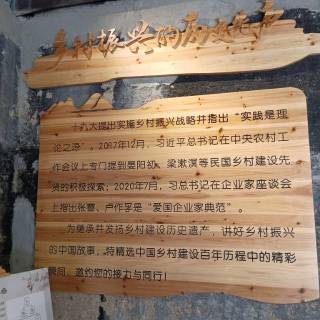 乡村振兴的历史元点
十九大提出实施乡村振兴战略并指出“实践是理
论之源”。2017年12月，习近平总书记在中央农村工
作会议上专门提到晏阳初、梁漱溟等民国乡村建设先
贤的积极探索；2020年7月，习总书记在企业家座谈会
上指出张謇、卢作孚是“爱国企业家典范”。
为继承并发扬乡村建设历史遗产，讲好乡村振兴
的中国故事，特精选中国乡村建设百年历程中的精彩
瞬间，邀约您的接力与同行！